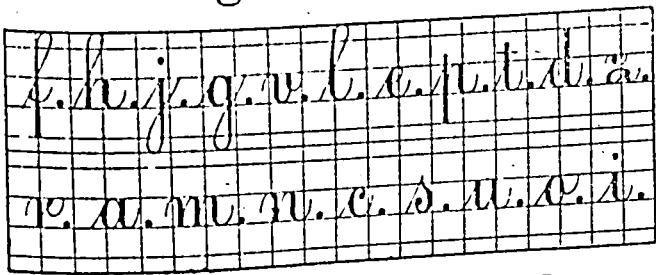 f. h. j. g. v. l. e. p. t. d. z.
r. a. m. n. c. s. u. o. i.